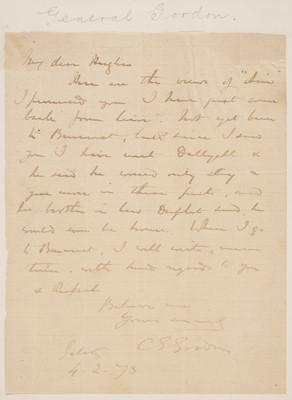 General Gordon.
My dear Hughes
Here are the views of "Aïn"
I promised you I have just come
back from . Not yet been
to , but since I saw
you I have met Dalyell &
he said he would only stay a
year more in these parts, and
his brother in law said he
would soon be home. When I go
to , I will write,
time, with kind regards to you
&
Believe me
Yours sincerely
C E Gordon
Galatz
4.2.73